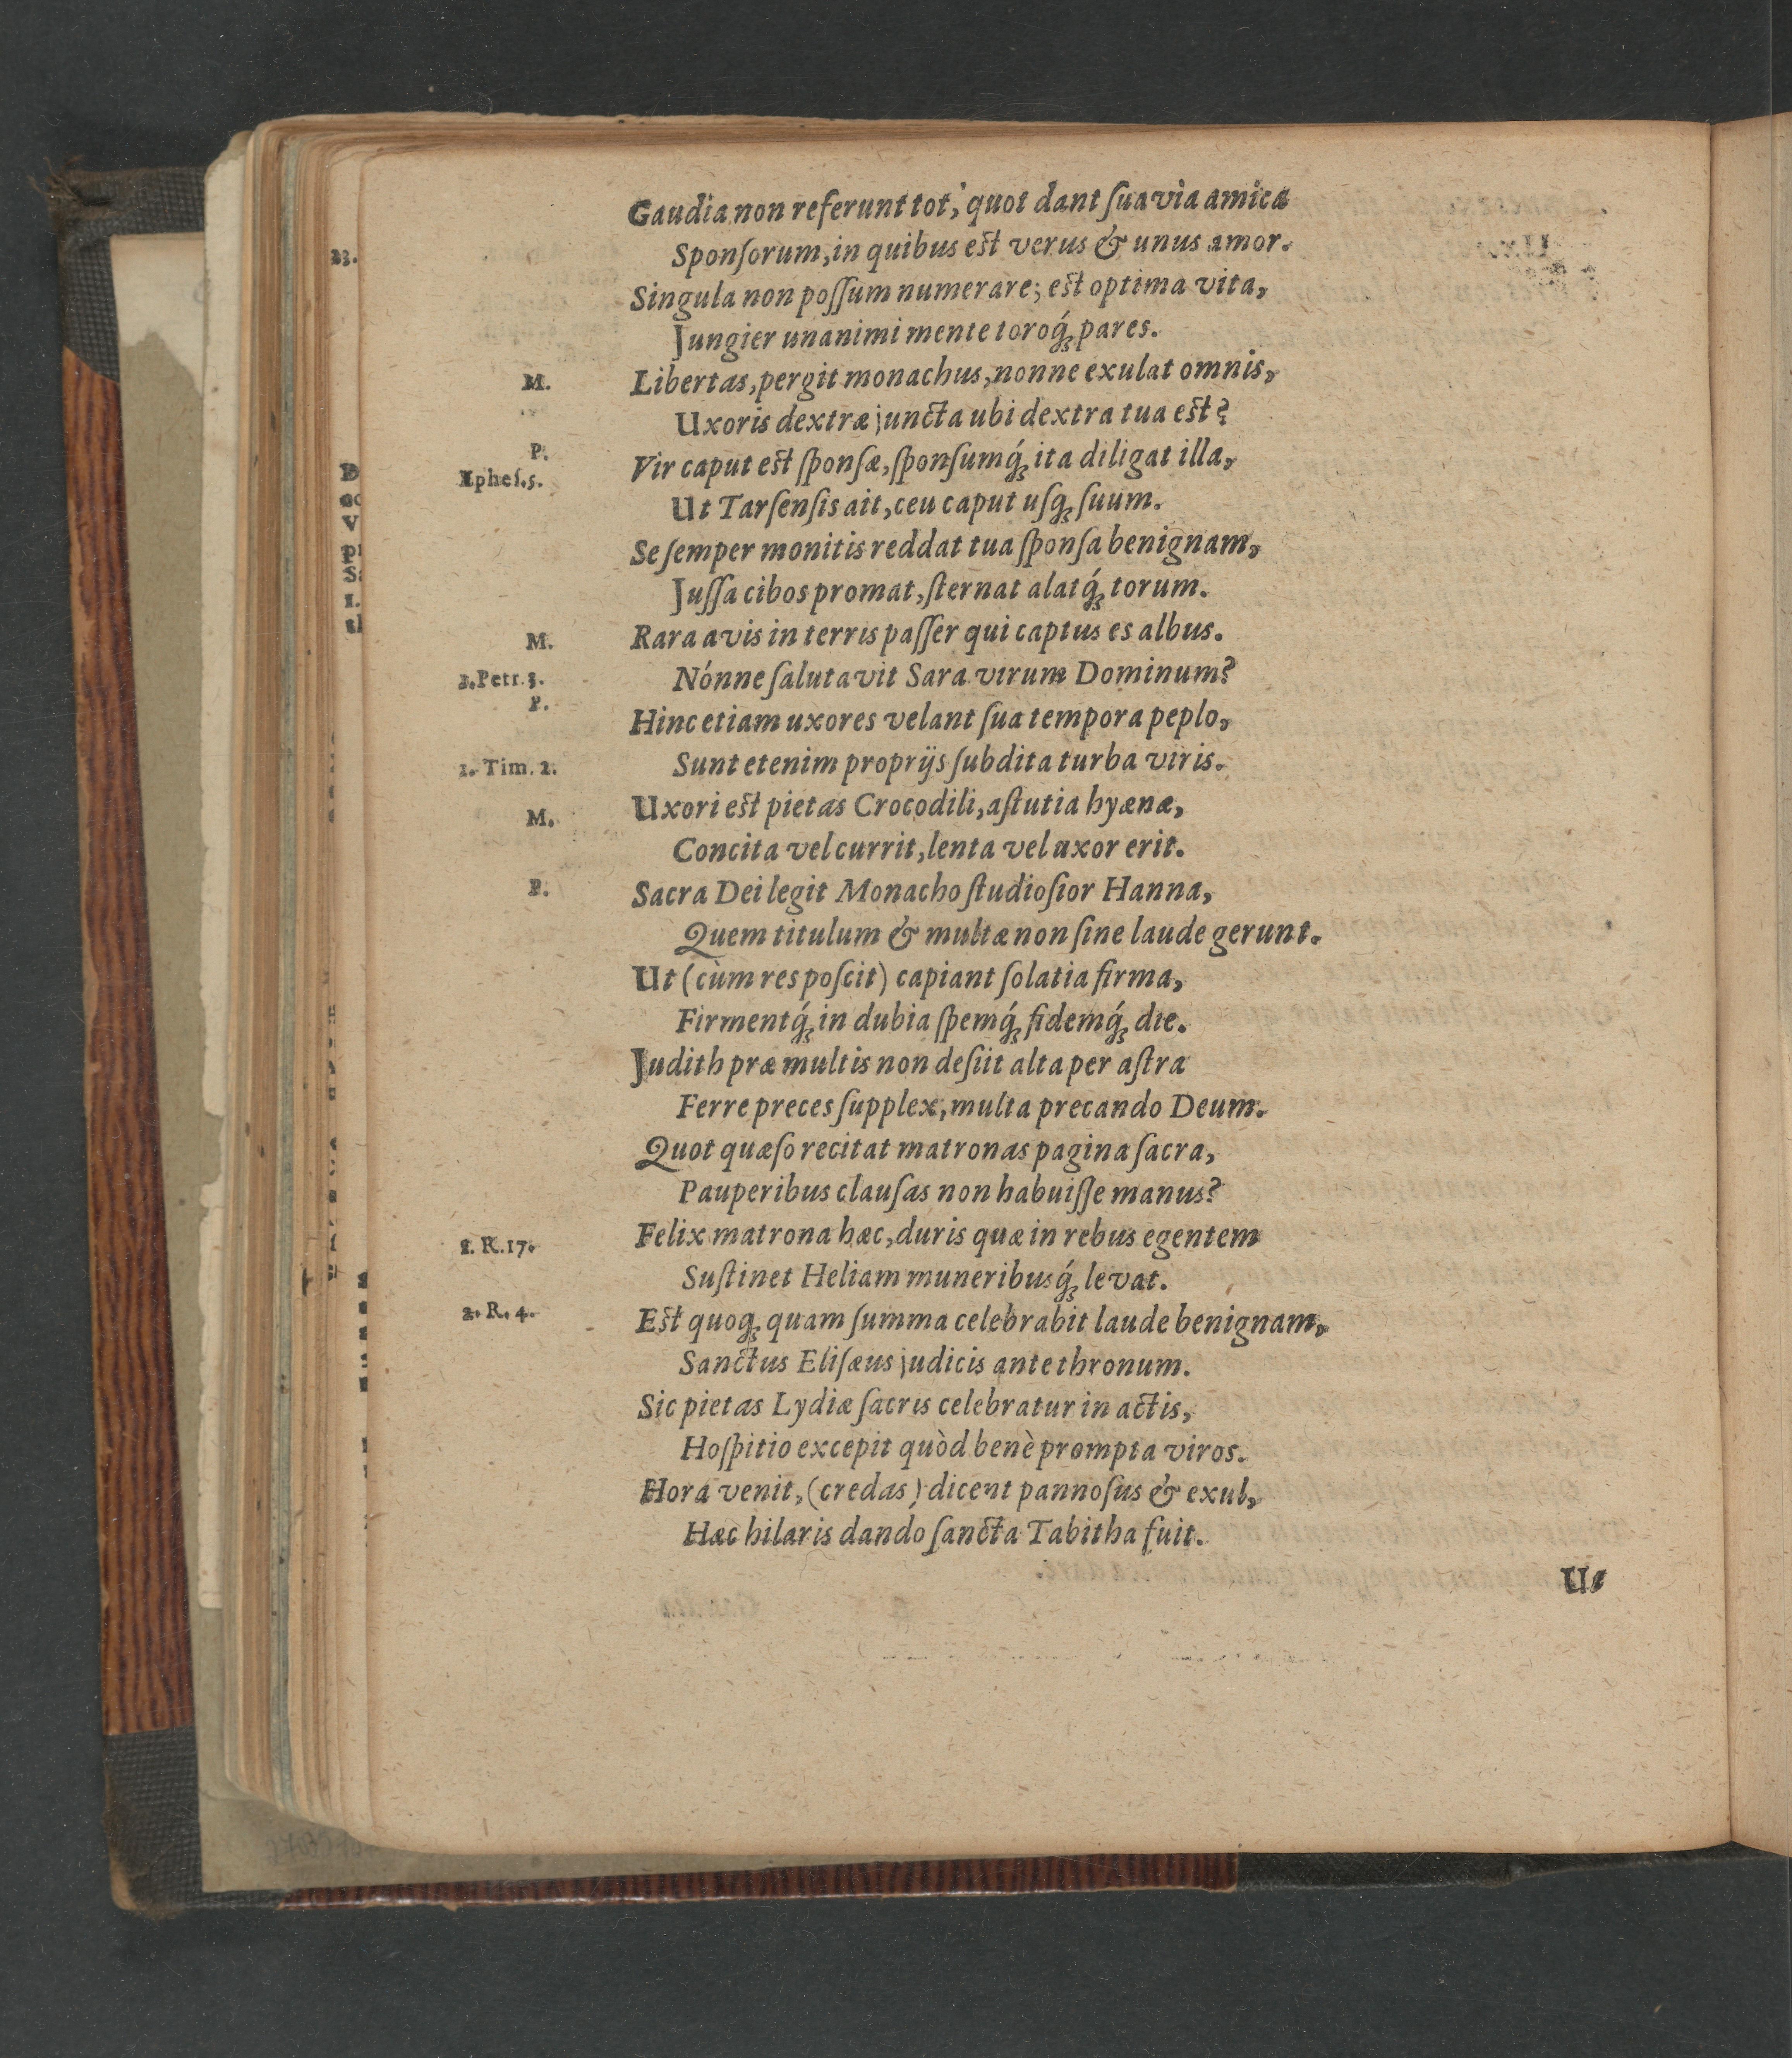 Gaudia non referunt tot, quot dant ſuavia amica
Sponſorum, in quibus est verus & unus amor.
Singula non poſſum numerare; est optima vita,
Jungier unanimi mente toroq́ꝫ pares.
M. Libertas, pergit monachus, nonne exulat omnis,
Uxoris dextræ juncta ubi dextra tua est?
P. Vir caput est ſponſæ, ſponſumq́ꝫ ita diligat illa,
Epheſ. 5. Ut Tarſenſis ait, ceu caput uſqꝫ ſuum.
Se ſemper monitis reddat tua ſponſa benignam,
Juſſa cibos promat, ſternat alatq́ꝫ torum.
M. Rara avis in terris paſſer qui captus es albus.
1. Petr. 3. Nónne ſalutavit Sara virum Dominum?
P. Hinc etiam uxores velant ſua tempora peplo,
1. Tim. 2. Sunt etenim proprijs ſubdita turba viris.
M. Uxori est pietas Crocodili, aſtutia hyænæ,
Concita vel currit, lenta vel uxor erit.
P. Sacra Dei legit Monacho ſtudioſior Hanna,
Quem titulum & multæ non ſine laude gerunt.
Ut (cùm res poſcit) capiant ſolatia firma,
Firmentq́ꝫ in dubia ſpemq́ꝫ fidemq́ꝫ die.
Judith præ multis non deſiit alta per aſtra
Ferre preces ſupplex, multa precando Deum.
Quot quæſo recitat matronas pagina ſacra,
Pauperibus clauſas non habuiſſe manus?
1. R. 17. Felix matrona hæc, duris quæ in rebus egentem
Suſtinet Heliam muneribusq́ꝫ levat.
2. R. 4. Est quoqꝫ quam ſumma celebrabit laude benignam,
Sanctus Eliſæus judicis ante thronum.
Sic pietas Lydiæ ſacris celebratur in actis,
Hoſpitio excepit quòd benè prompta viros.
Hora venit, (credas) dicent pannoſus & exul,
Hæc hilaris dando ſancta Tabitha fuit.
Ut